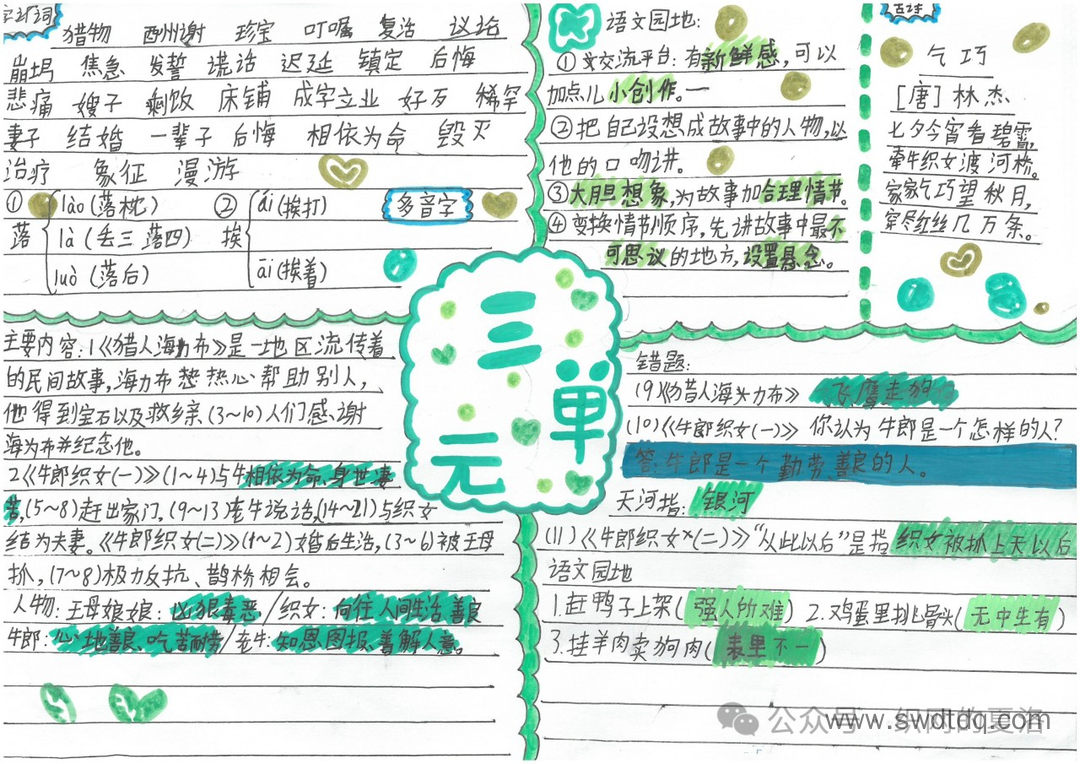 字词
猎物 酬谢 珍宝 叮嘱 复活 议论
崩塌 焦急 发誓 谎话 迟延 镇定 后悔
悲痛 嫂子 剩饭 床铺 成家立业 好歹 稀罕
妻子 结婚 一辈子 后悔 相依为命 毁灭
治疗 象征 漫游
多音字
① 落 lào(落枕)
là(丢三落四)
luò(落后)
② 挨 ái(挨打)
āi(挨着)
语文园地:
①交流平台:有新鲜感,可以
加点儿小创作。一
②把自己设想成故事中的人物,以
他的口吻讲。
③大胆想象,为故事加合理情节。
④变换情节顺序,先讲故事中最不
可思议的地方,设置悬念。
古诗
乞巧
[唐]林杰
七夕今宵看碧霄,
牵牛织女渡河桥。
家家乞巧望秋月,
穿尽红丝几万条。
三
单
元
主要内容:1《猎人海力布》是一地区流传着
的民间故事,海力布热心帮助别人,
他得到宝石以及救乡亲.(3~10)人们感谢
海力布并纪念他。
2.《牛郎织女(一)》(1~4)与牛相依为命、身世凄
苦,(5~8)赶出家门,(9~13)老牛说话,(14~21)与织女
结为夫妻。《牛郎织女(二)》(1~2)婚后生活,(3~6)被王母
抓,(7~8)极力反抗、鹊桥相会。
人物:王母娘娘:凶狠毒恶/织女:向往人间生活、善良
牛郎:心地善良、吃苦耐劳/老牛:知恩图报、善解人意。
错题:
(9)《猎人海力布》 飞鹰走狗
(10)《牛郎织女(一)》 你认为牛郎是一个怎样的人?
答:牛郎是一个勤劳、善良的人。
天河指:银河
(11)《牛郎织女(二)》"从此以后"是指织女被抓上天以后
语文园地
1.赶鸭子上架(强人所难) 2.鸡蛋里挑骨头(无中生有)
3.挂羊肉卖狗肉(表里不一)
公众号
www.swdtdq.com